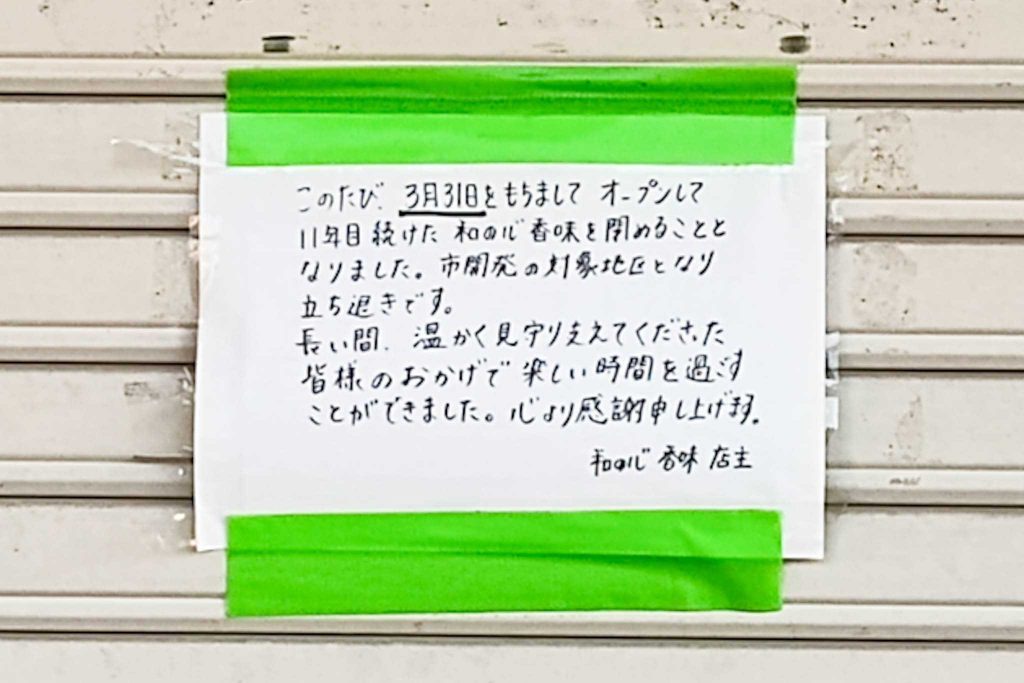 このたび、3月31日をもちまして オープンして
11年目続けた 和の心 香味を閉めることと
なりました。市開発の対象地区となり
立ち退きです。
長い間、温かく見守り支えてくださった
皆様のおかげで楽しい時間を過ごす
ことができました。心より感謝申し上げます。
和の心 香味 店主